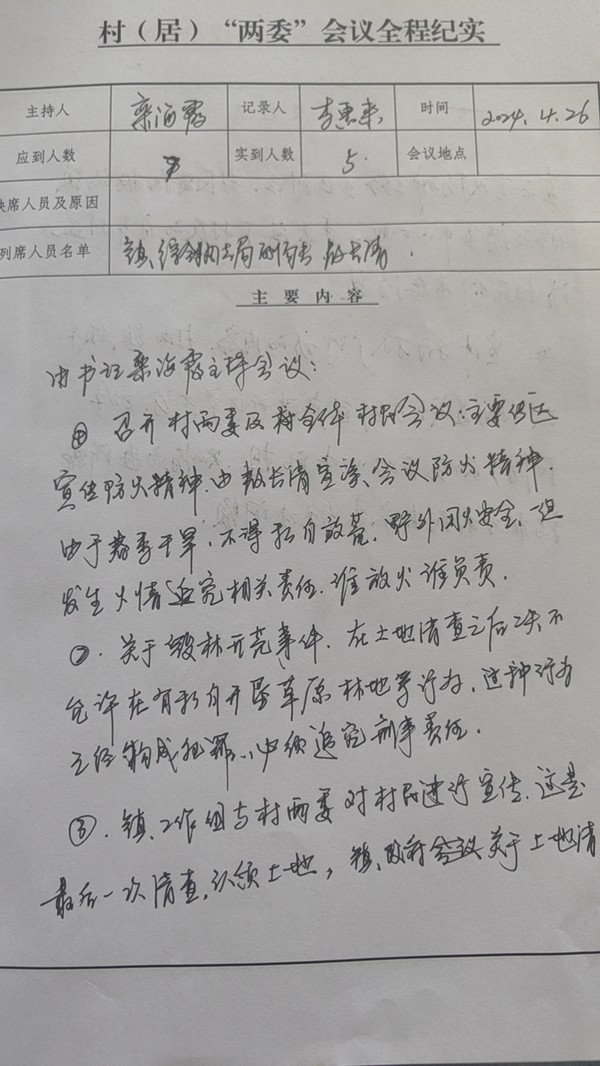 村（居）“两委”会议全程纪实
主持人 栾海霞 记录人 李惠来 时间 2024.4.26
应到人数 7 实到人数 5. 会议地点
缺席人员及原因
列席人员名单 镇、综合执法局副局长
主要内容
由书记栾海霞主持会议：
① 召开村两委及村全体村民会议：主要传达
宣传防火精神.由 长清宣读会议防火精神.
由于春季干旱，不得私自放荒，野外用火安全，一旦
发生火情追究相关责任.谁放火谁负责.
②. 关于毁林开荒事件. 在土地清查之后 不
允许在有私自开垦草原林地等行为，这种行为
已经构成犯罪.必须追究刑事责任.
③. 镇、工作组与村两委对村民进行宣传.这是
最后一次清查，认领土地，镇、政府会议关于土地清